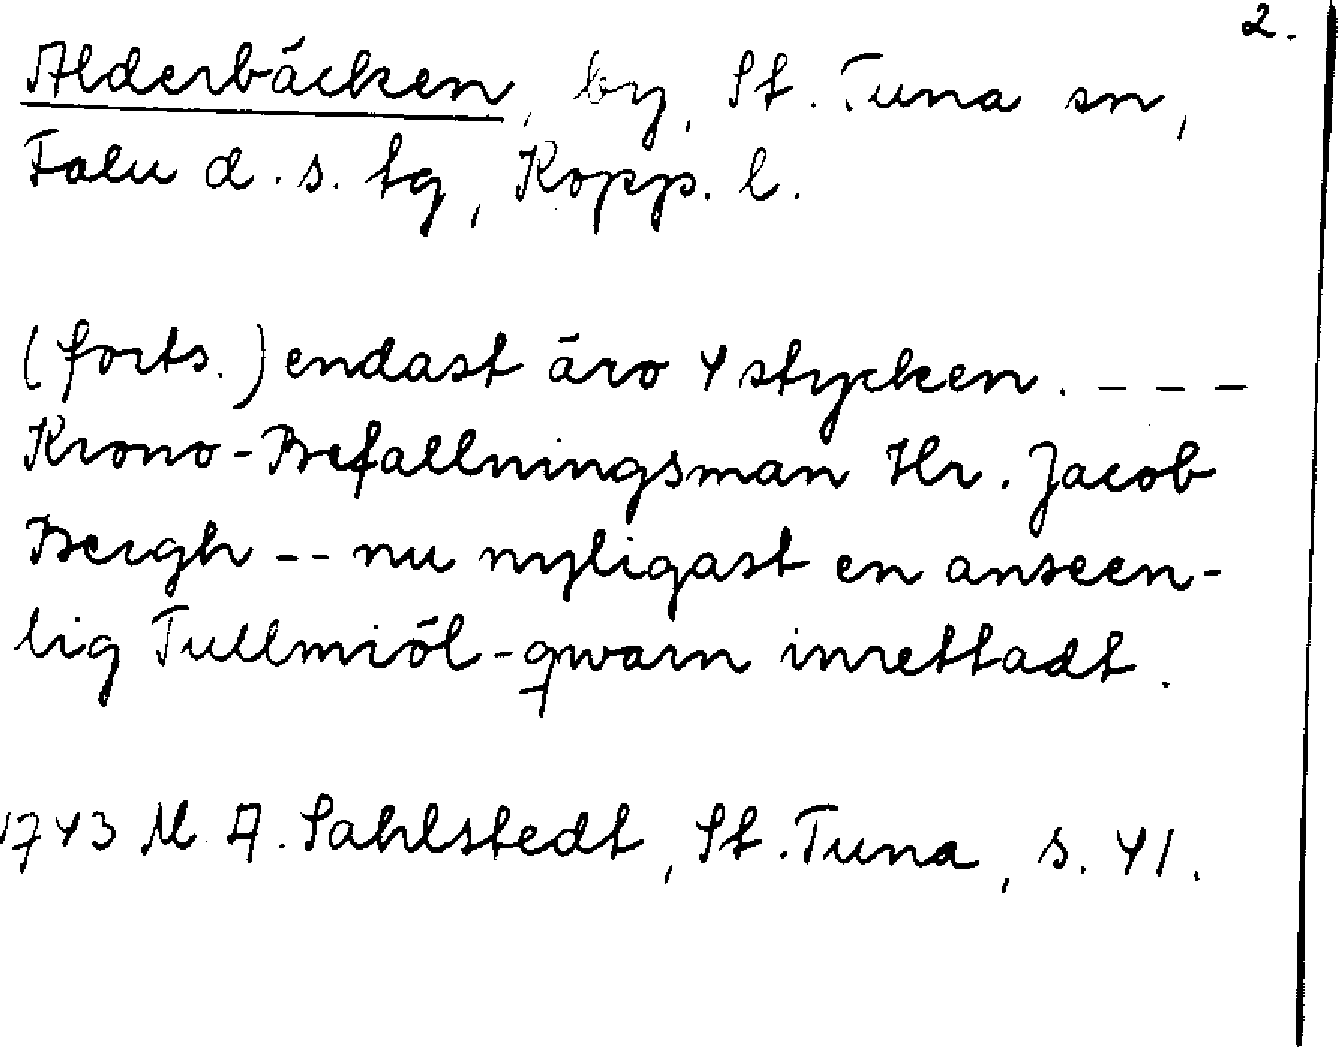 2.
Alderbäcken, by, St. Tuna sn,
Falu d.s. tg, Kopp. l.
(forts.) endast äro 4 stycken. - - -
Krono-Befallningsman Hr. Jacob
Bergh -- nu nyligast en anseen-
lig Tullmiöl-qwarn inrettadt.
1743 M A. Sahlstedt, St. Tuna, s. 41.